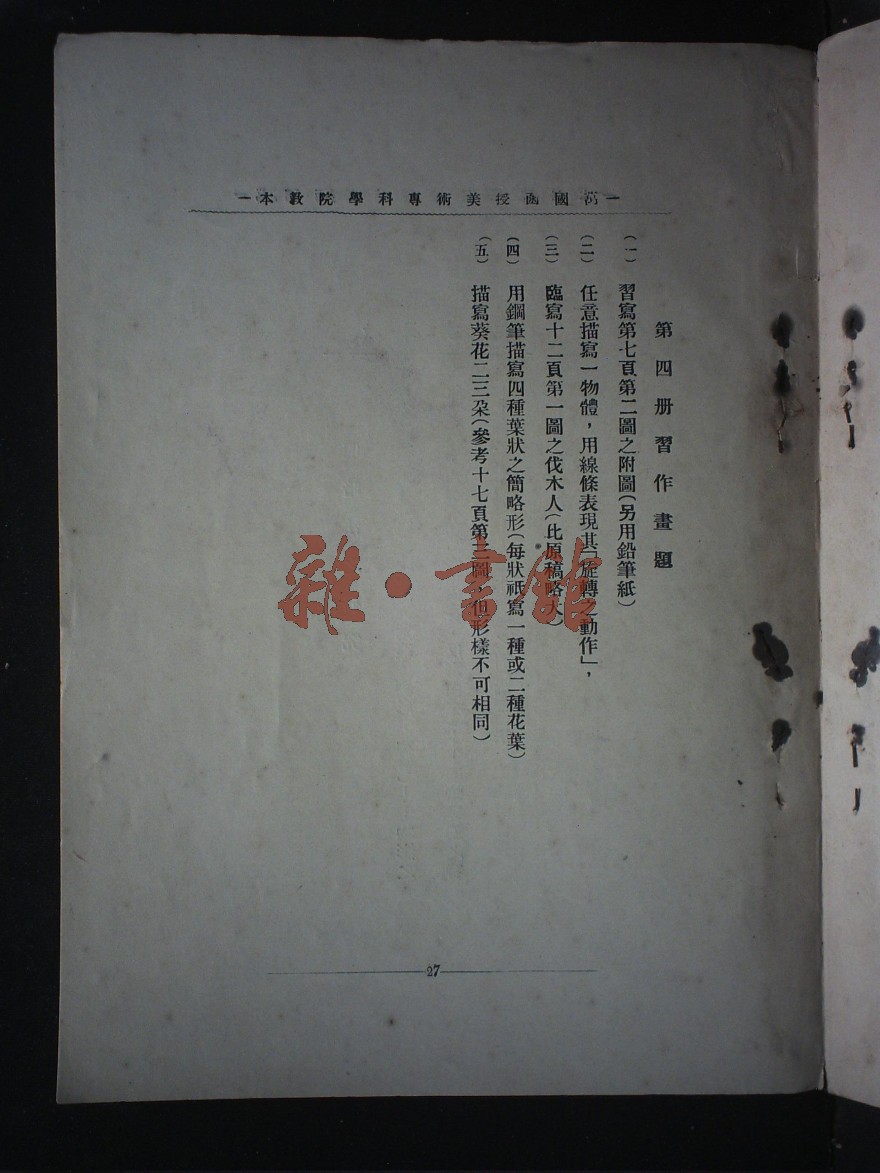 萬國函授美術專科學院敎本
第四册習作畫題
(一) 習寫第七頁第二圖之附圖(另用鉛筆紙)
(二) 任意描寫一物體，用線條表現其「旋轉之動作」，
(三) 臨寫十二頁第一圖之伐木人(比原稿略大)
(四) 用鋼筆描寫四種葉狀之簡略形(每狀祇寫一種或二種花葉)
(五) 描寫葵花二三朶(參考十七頁第三圖，但形樣不可相同)
27
雜·書館